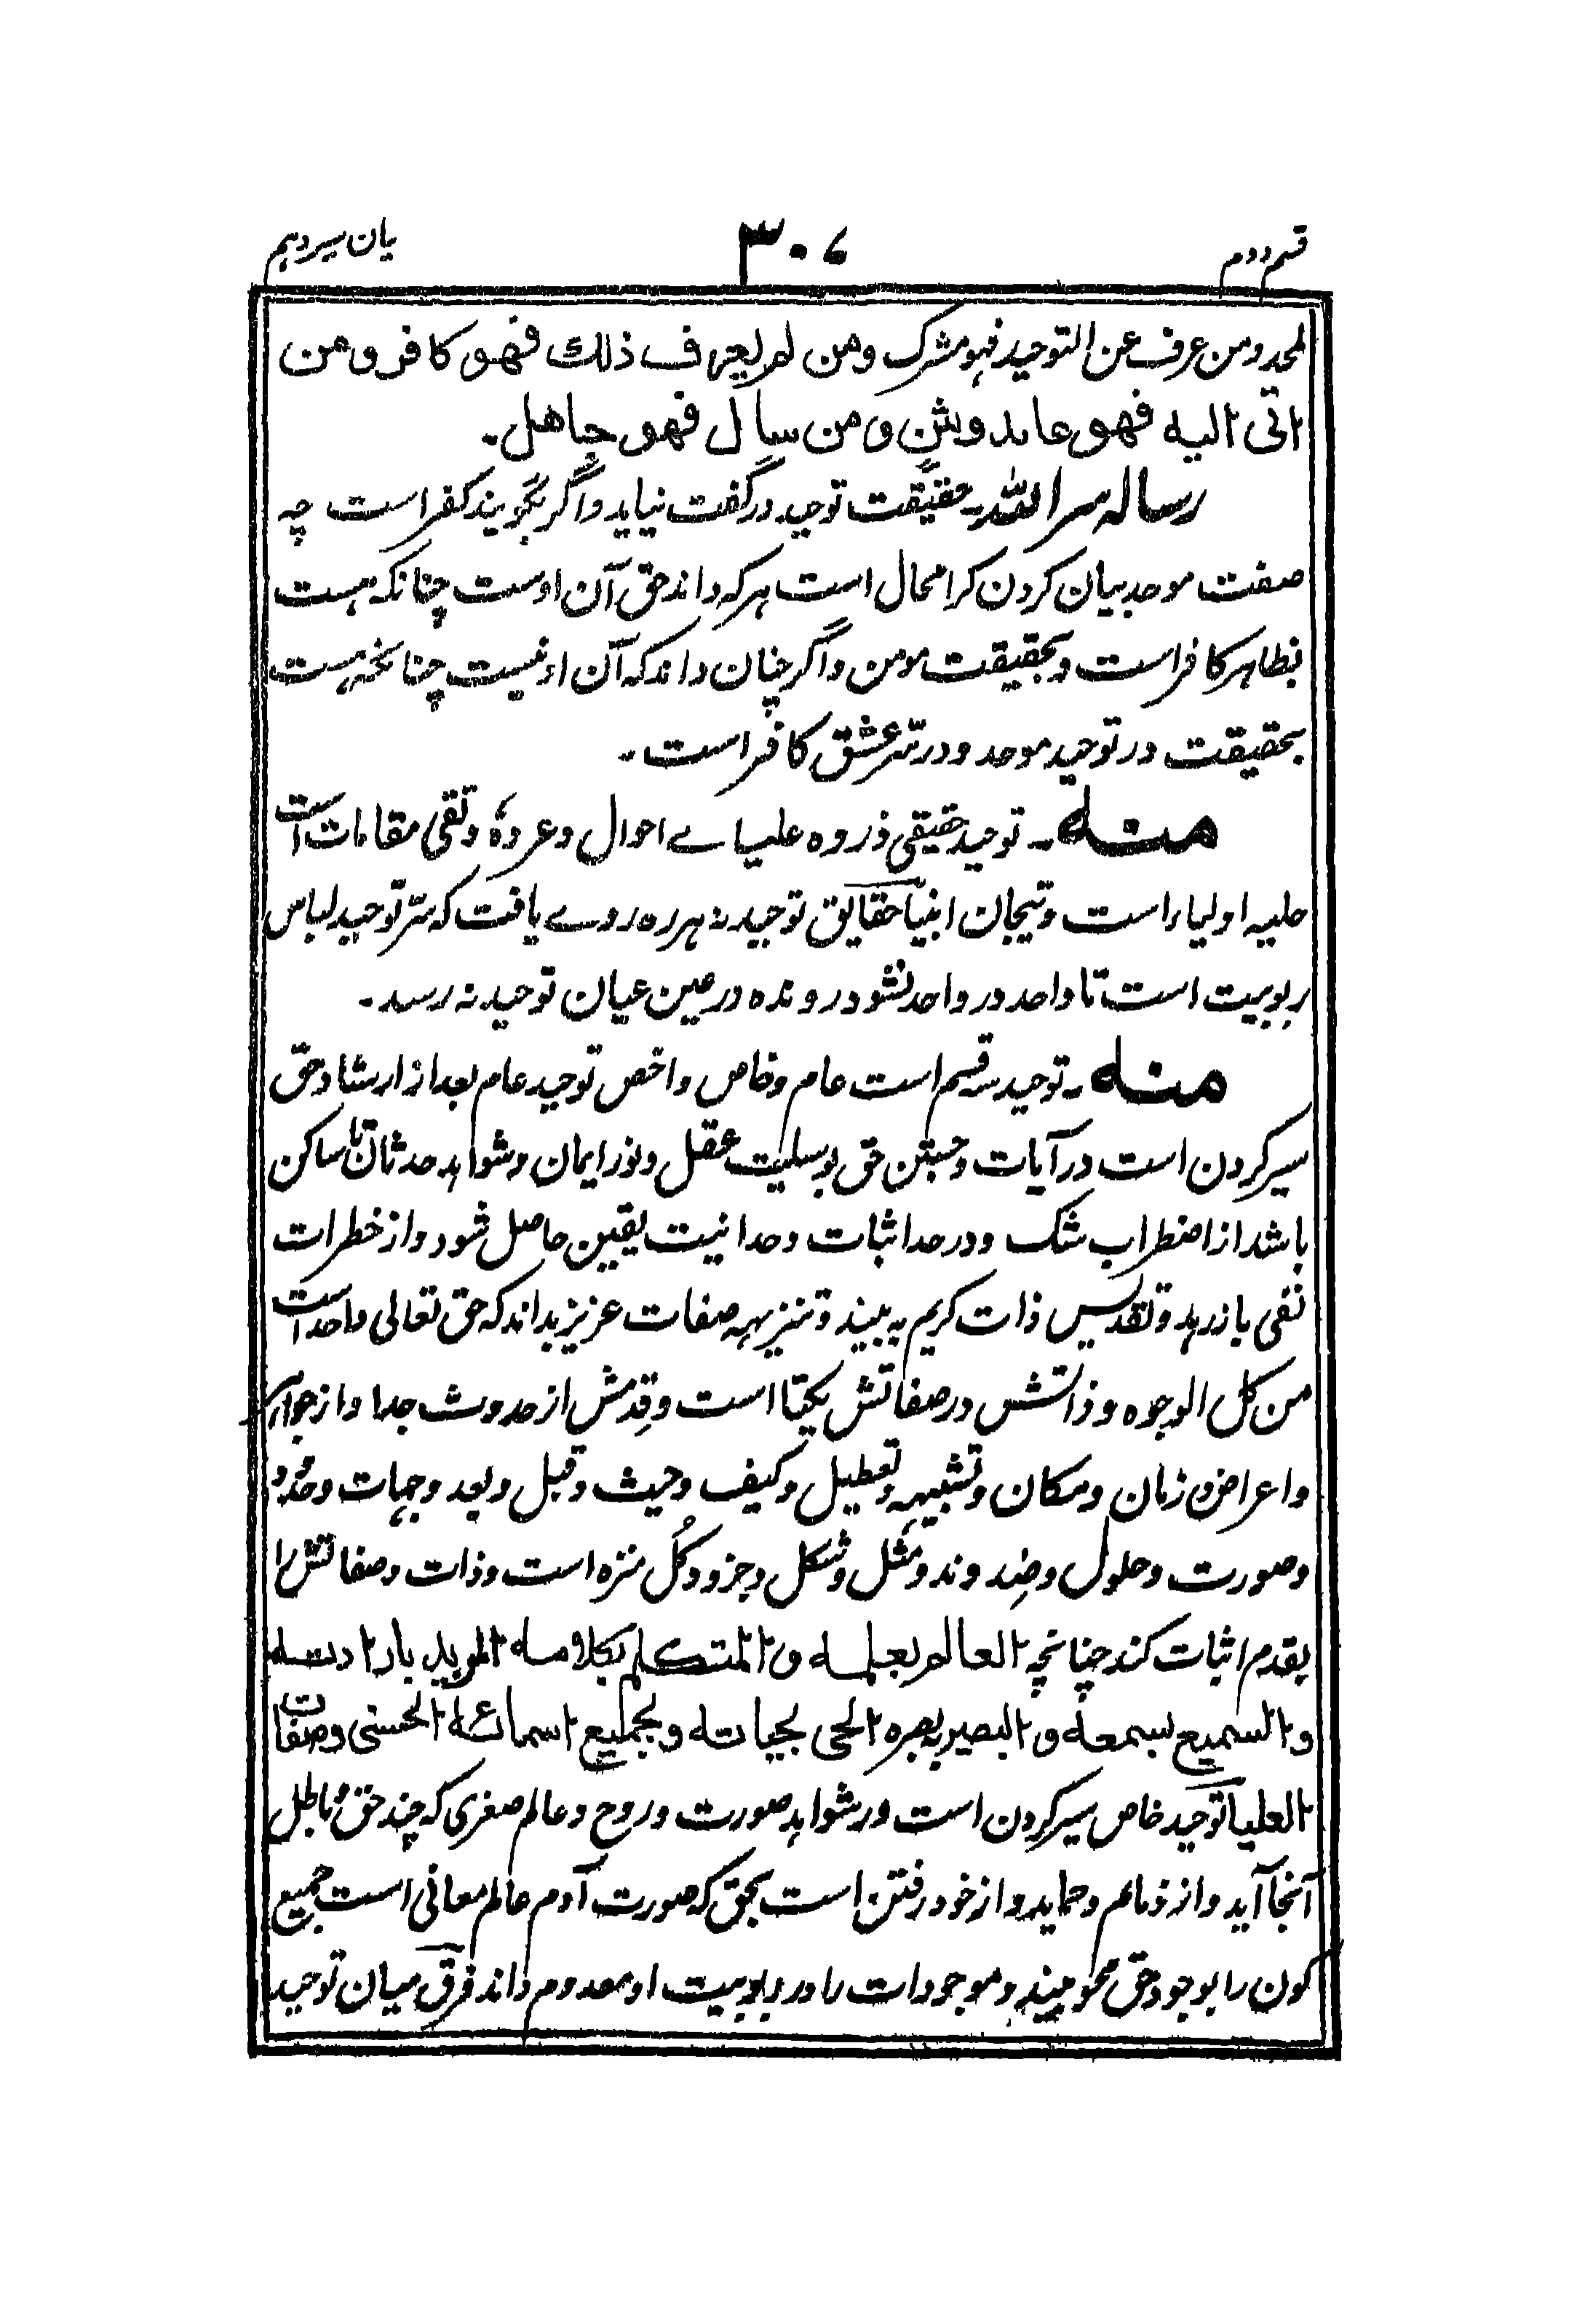 قسم دوم ۳۰۷ بیان سیردہم
ملحد ومن عرف عن التوحید فہو مشرک ومن لم یعرف ذلك فهو کافر ومن
اتی الیه فهو عابد وثن ومن سأل فهو جاهل۔
رسالہ سر اللہ۔ حقیقت توحید در گفت نیاید واگر بگویند کفر است چہ
صفت موحد بیان کردن کرا محال است ہر کہ داند حق آن اوست چنانکہ ہست
بظاہر کافر است وبحقیقت مومن واگر چنان داند کہ آن او نیست چنانچہ ہست
بحقیقت در توحید موحد ودر سّر عشق کافر است۔
منه۔ توحید حقیقی ذروہ علیاے احوال وعروۂ وثقی مقامات است
حلیہ اولیاء است وتیجان انبیا حقایق توحید نہ ہر رہ روے یافت کہ سّر توحید لباس
ربوبیت است تا واحد در واحد نشود روندہ در عین عیان توحید نہ رسد۔
منه۔ توحید سہ قسم است عام وخاص واخص توحید عام بعد از ارشاد حق
سیر کردن است در آیات وجستن حق بوسلیت عقل ونور ایمان وشواہد حدثان تا ساکن
باشد از اضطراب شک ودر حد اثبات وحدانیت یقین حاصل شود واز خطرات
نفی باز رہد وتقدیس ذات کریم بہ بیند وتنزیہہ صفات عزیز بداند کہ حق تعالی واحد است
من کل الوجوہ وذاتش در صفاتش یکتا است وقِدمش از حدوث جدا واز جواہر
واعراض وزمان ومکان وتشبیہہ وتعطیل وکیف وحیث وقبل وبعد وجہات وحدود
وصورت وحلول وضِد وند ومثل وشکل وجزو وکُل منزہ است وذات وصفاتش را
بقدم اثبات کند چنانچہ العالم بعلمه والمتکلم بکلامه المرید بارادته
والسمیع بسمعه والبصیر ببصره الحی بحیاته وبجمیع اسمائه الحسنی وصفات
العلیا توحید خاص سیر کردن است در شواہد صورت وروح وعالم صغری کہ چند حق وباطل
آنجا آید واز ذمائم وحماید واز خود رفتن است بحق کہ صورت آدم عالم معانی است جمیع
کون را بوجود حق محو بیند وموجودات را در ربوبیت او معدوم داند فرق میان توحید